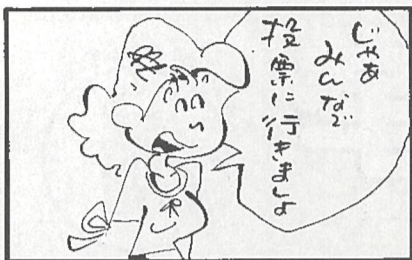 じゃあ
みんなで
投票に行きましょ